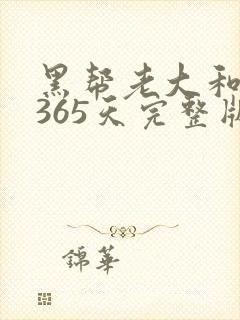 黑帮老大和
365天完整版
錦華